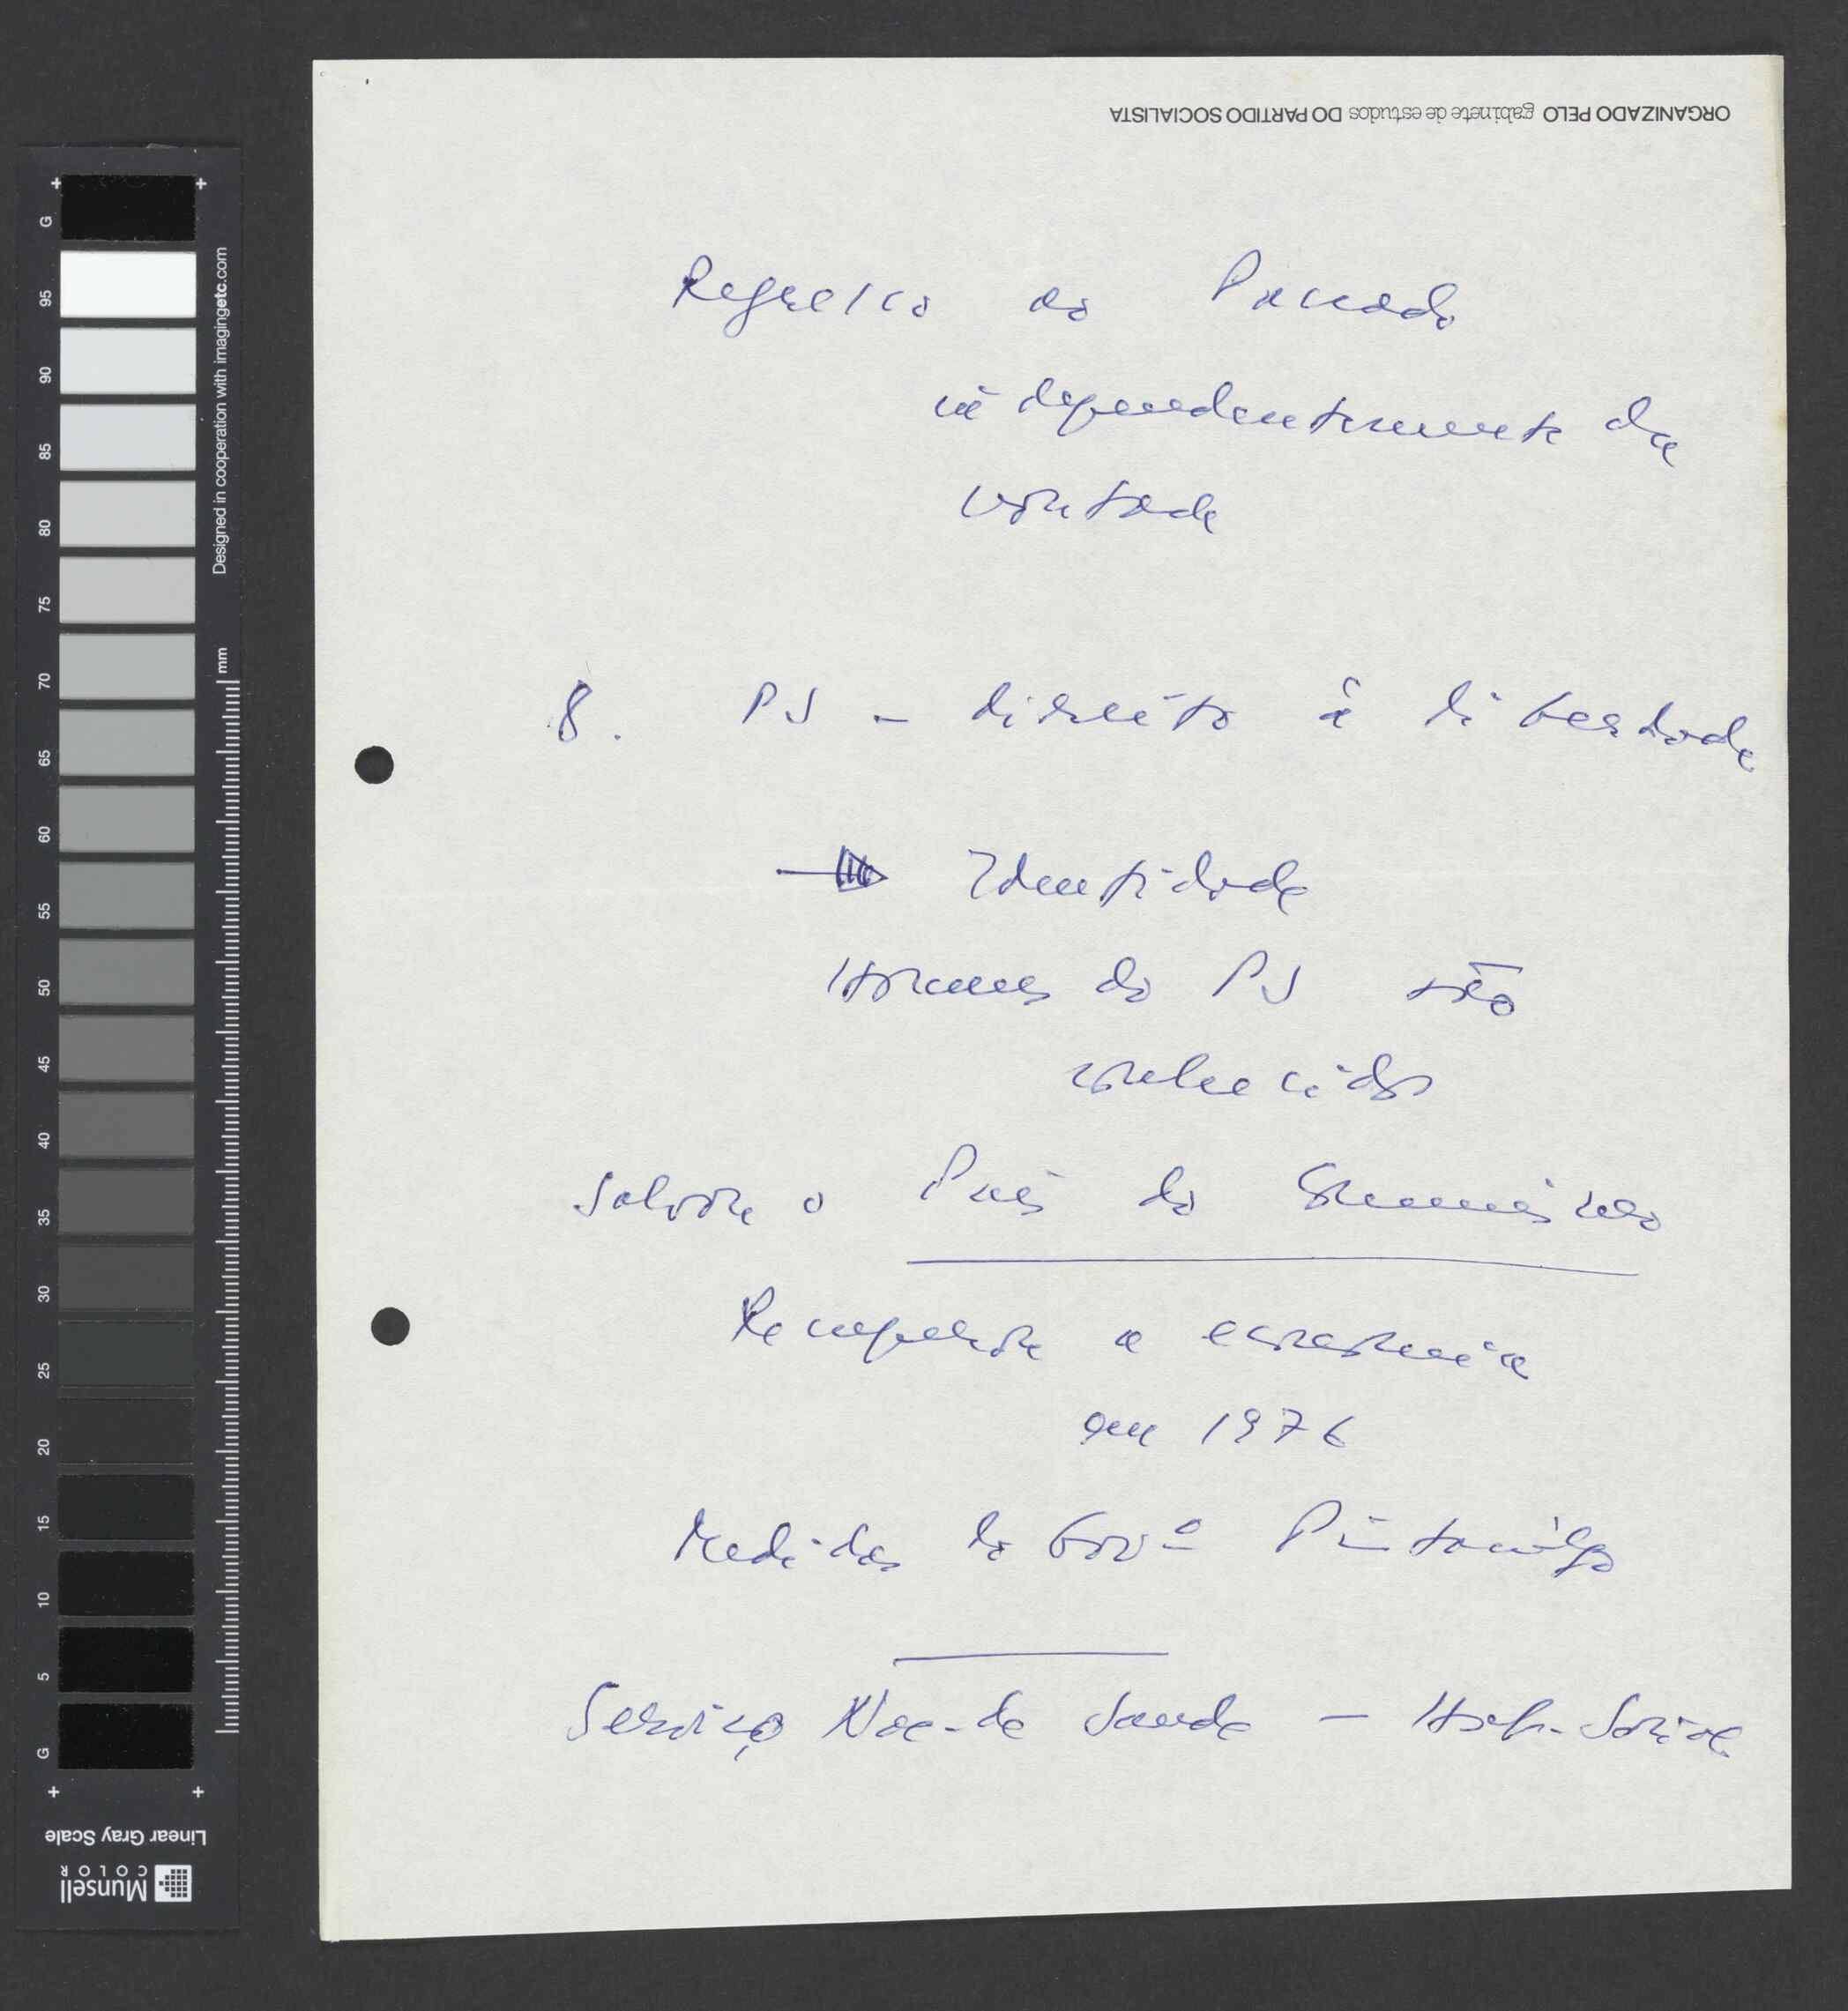 ORGANIZADO PELO gabinete de estudos DO PARTIDO SOCIALISTA
Regresso ao Passado
independentemente da
vontade
8. PS - direito à liberdade
Identidade
Homens do PS são
conhecidos
Salvou o País do Gonçalvismo
Recuperou a economia
em 1976
Medidas do Govº Pintasilgo
Serviço Nac. de Saude -
G 95 90 85 80 75 70 65 60 55 50 45 40 35 30 25 20 15 10 5 G
Designed in cooperation with imagingetc.com
mm
Linear Gray Scale
Munsell
COLOR